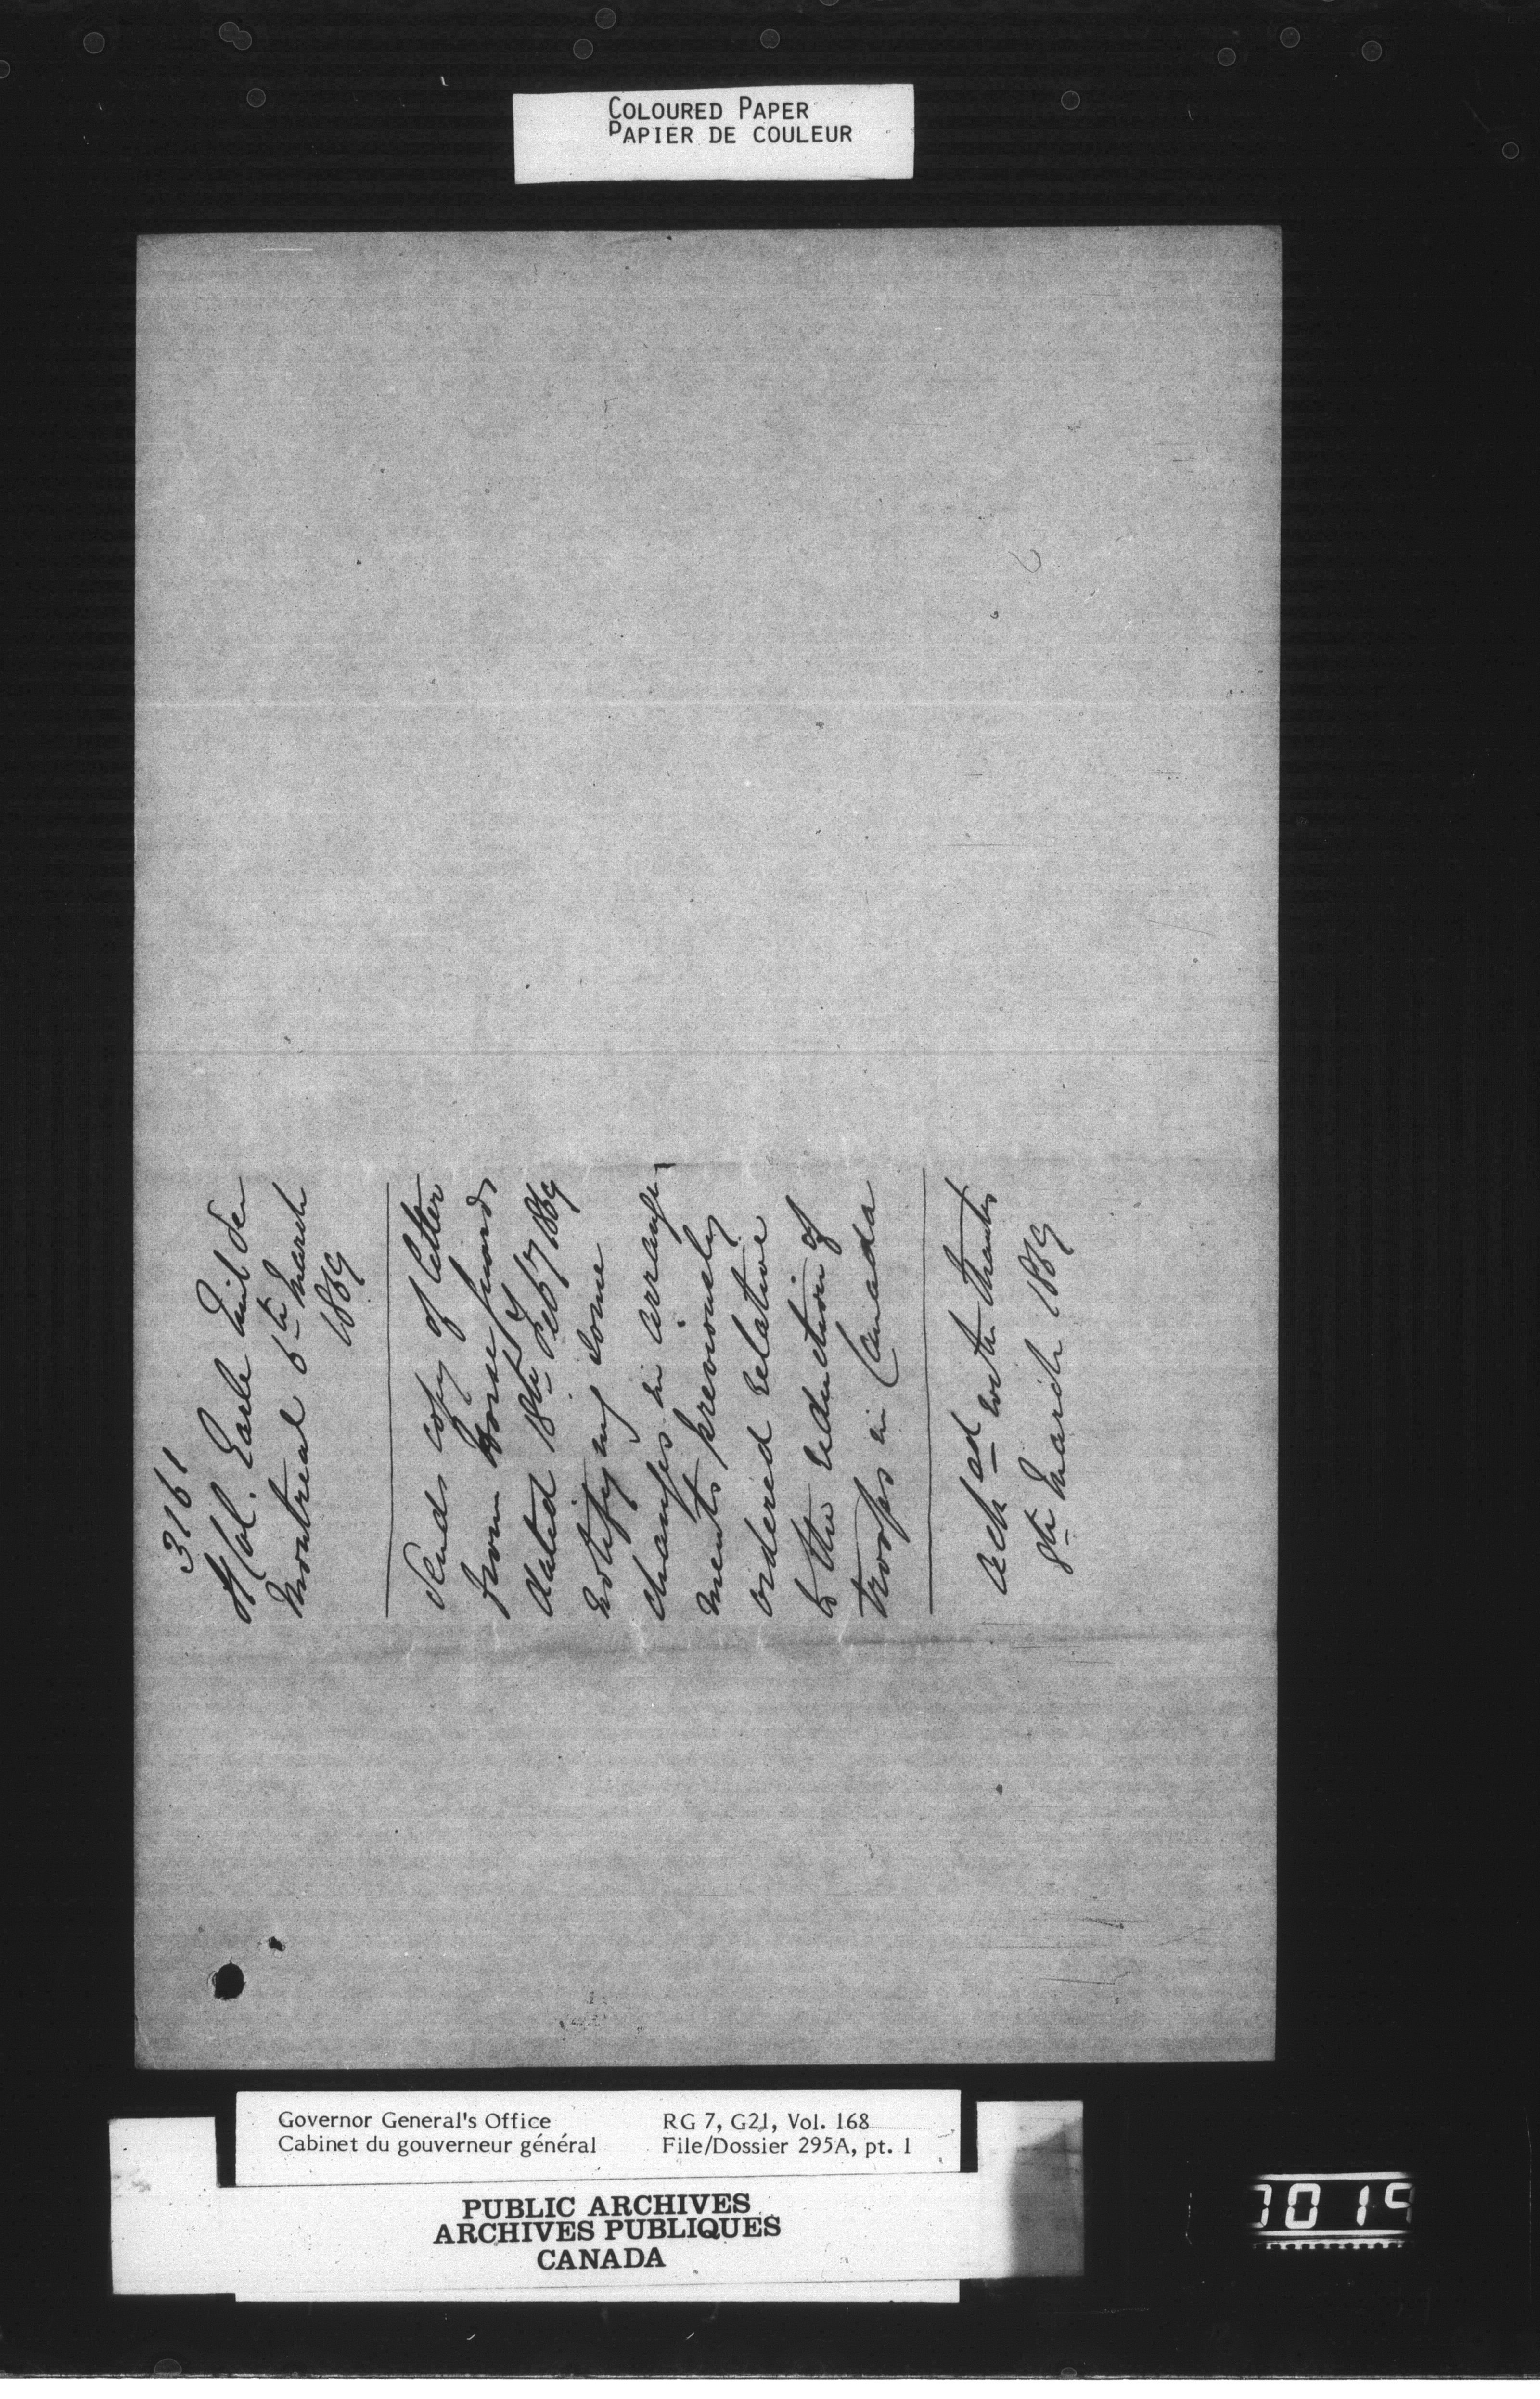 COLOURED PAPER
PAPIER DE COULEUR
3161
Col. Earle Mil Sec
Montreal 6th March
1869
Sends copy of letter
from Horse Guards
dated 18th Feby 1869
notifying some
changes in arrange-
ments previously
ordered relative
to the reduction of
troops in Canada
ackd with thanks
8th March 1869
Governor General's Office
Cabinet du gouverneur général
RG 7, G21, Vol. 168
File/Dossier 295A, pt. 1
PUBLIC ARCHIVES
ARCHIVES PUBLIQUES
CANADA